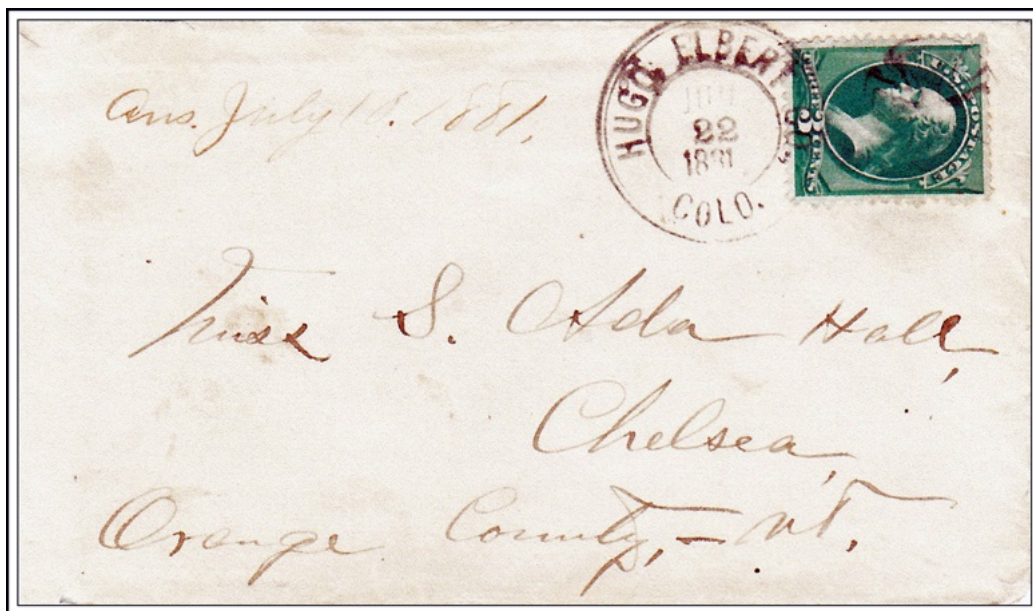 Ans. July 18. 1881.
HUGO, ELBERT CO.
22
1881
COLO.
U.S. POSTAGE
THREE 3 CENTS
Miss S. Ada Hall,
Chelsea,
Orange County, - Vt.